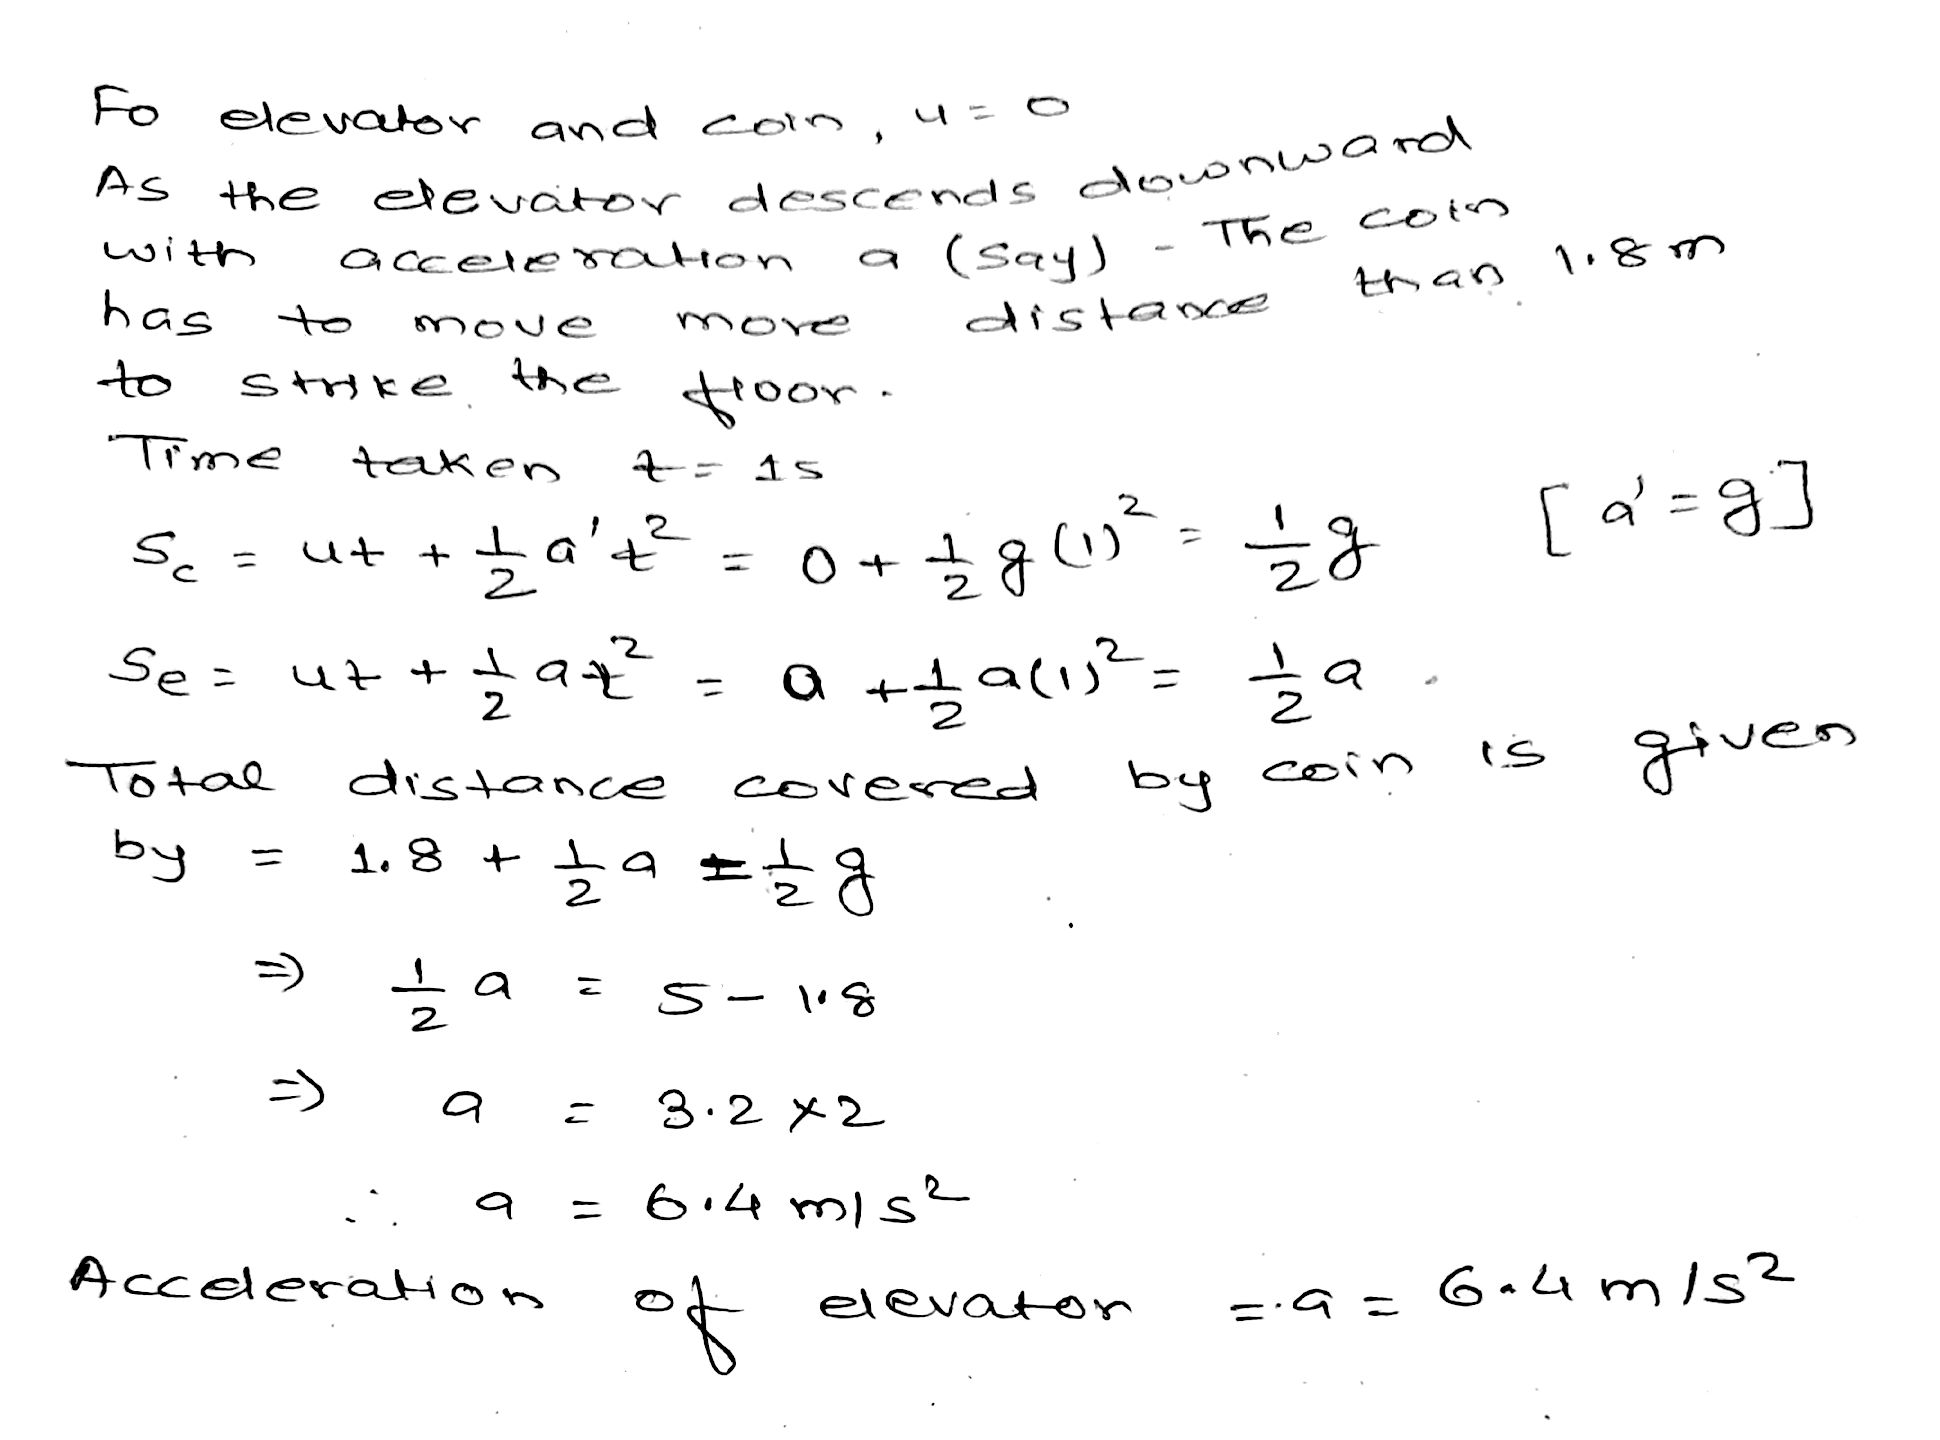 Fo elevator and coin, u = 0
As the elevator descends downward
with acceleration a (say) - The coin
has to move more distance than 1.8 m
to strike the floor.
Time taken t = 1s
S_c = ut + 1/2 a't² = 0 + 1/2 g (1)² = 1/2 g [a' = g]
S_e = ut + 1/2 at² = 0 + 1/2 a(1)² = 1/2 a.
Total distance covered by coin is given
by = 1.8 + 1/2 a = 1/2 g
⇒ 1/2 a = 5 - 1.8
⇒ a = 3.2 × 2
∴ a = 6.4 m/s²
Acceleration of elevator = a = 6.4 m/s²